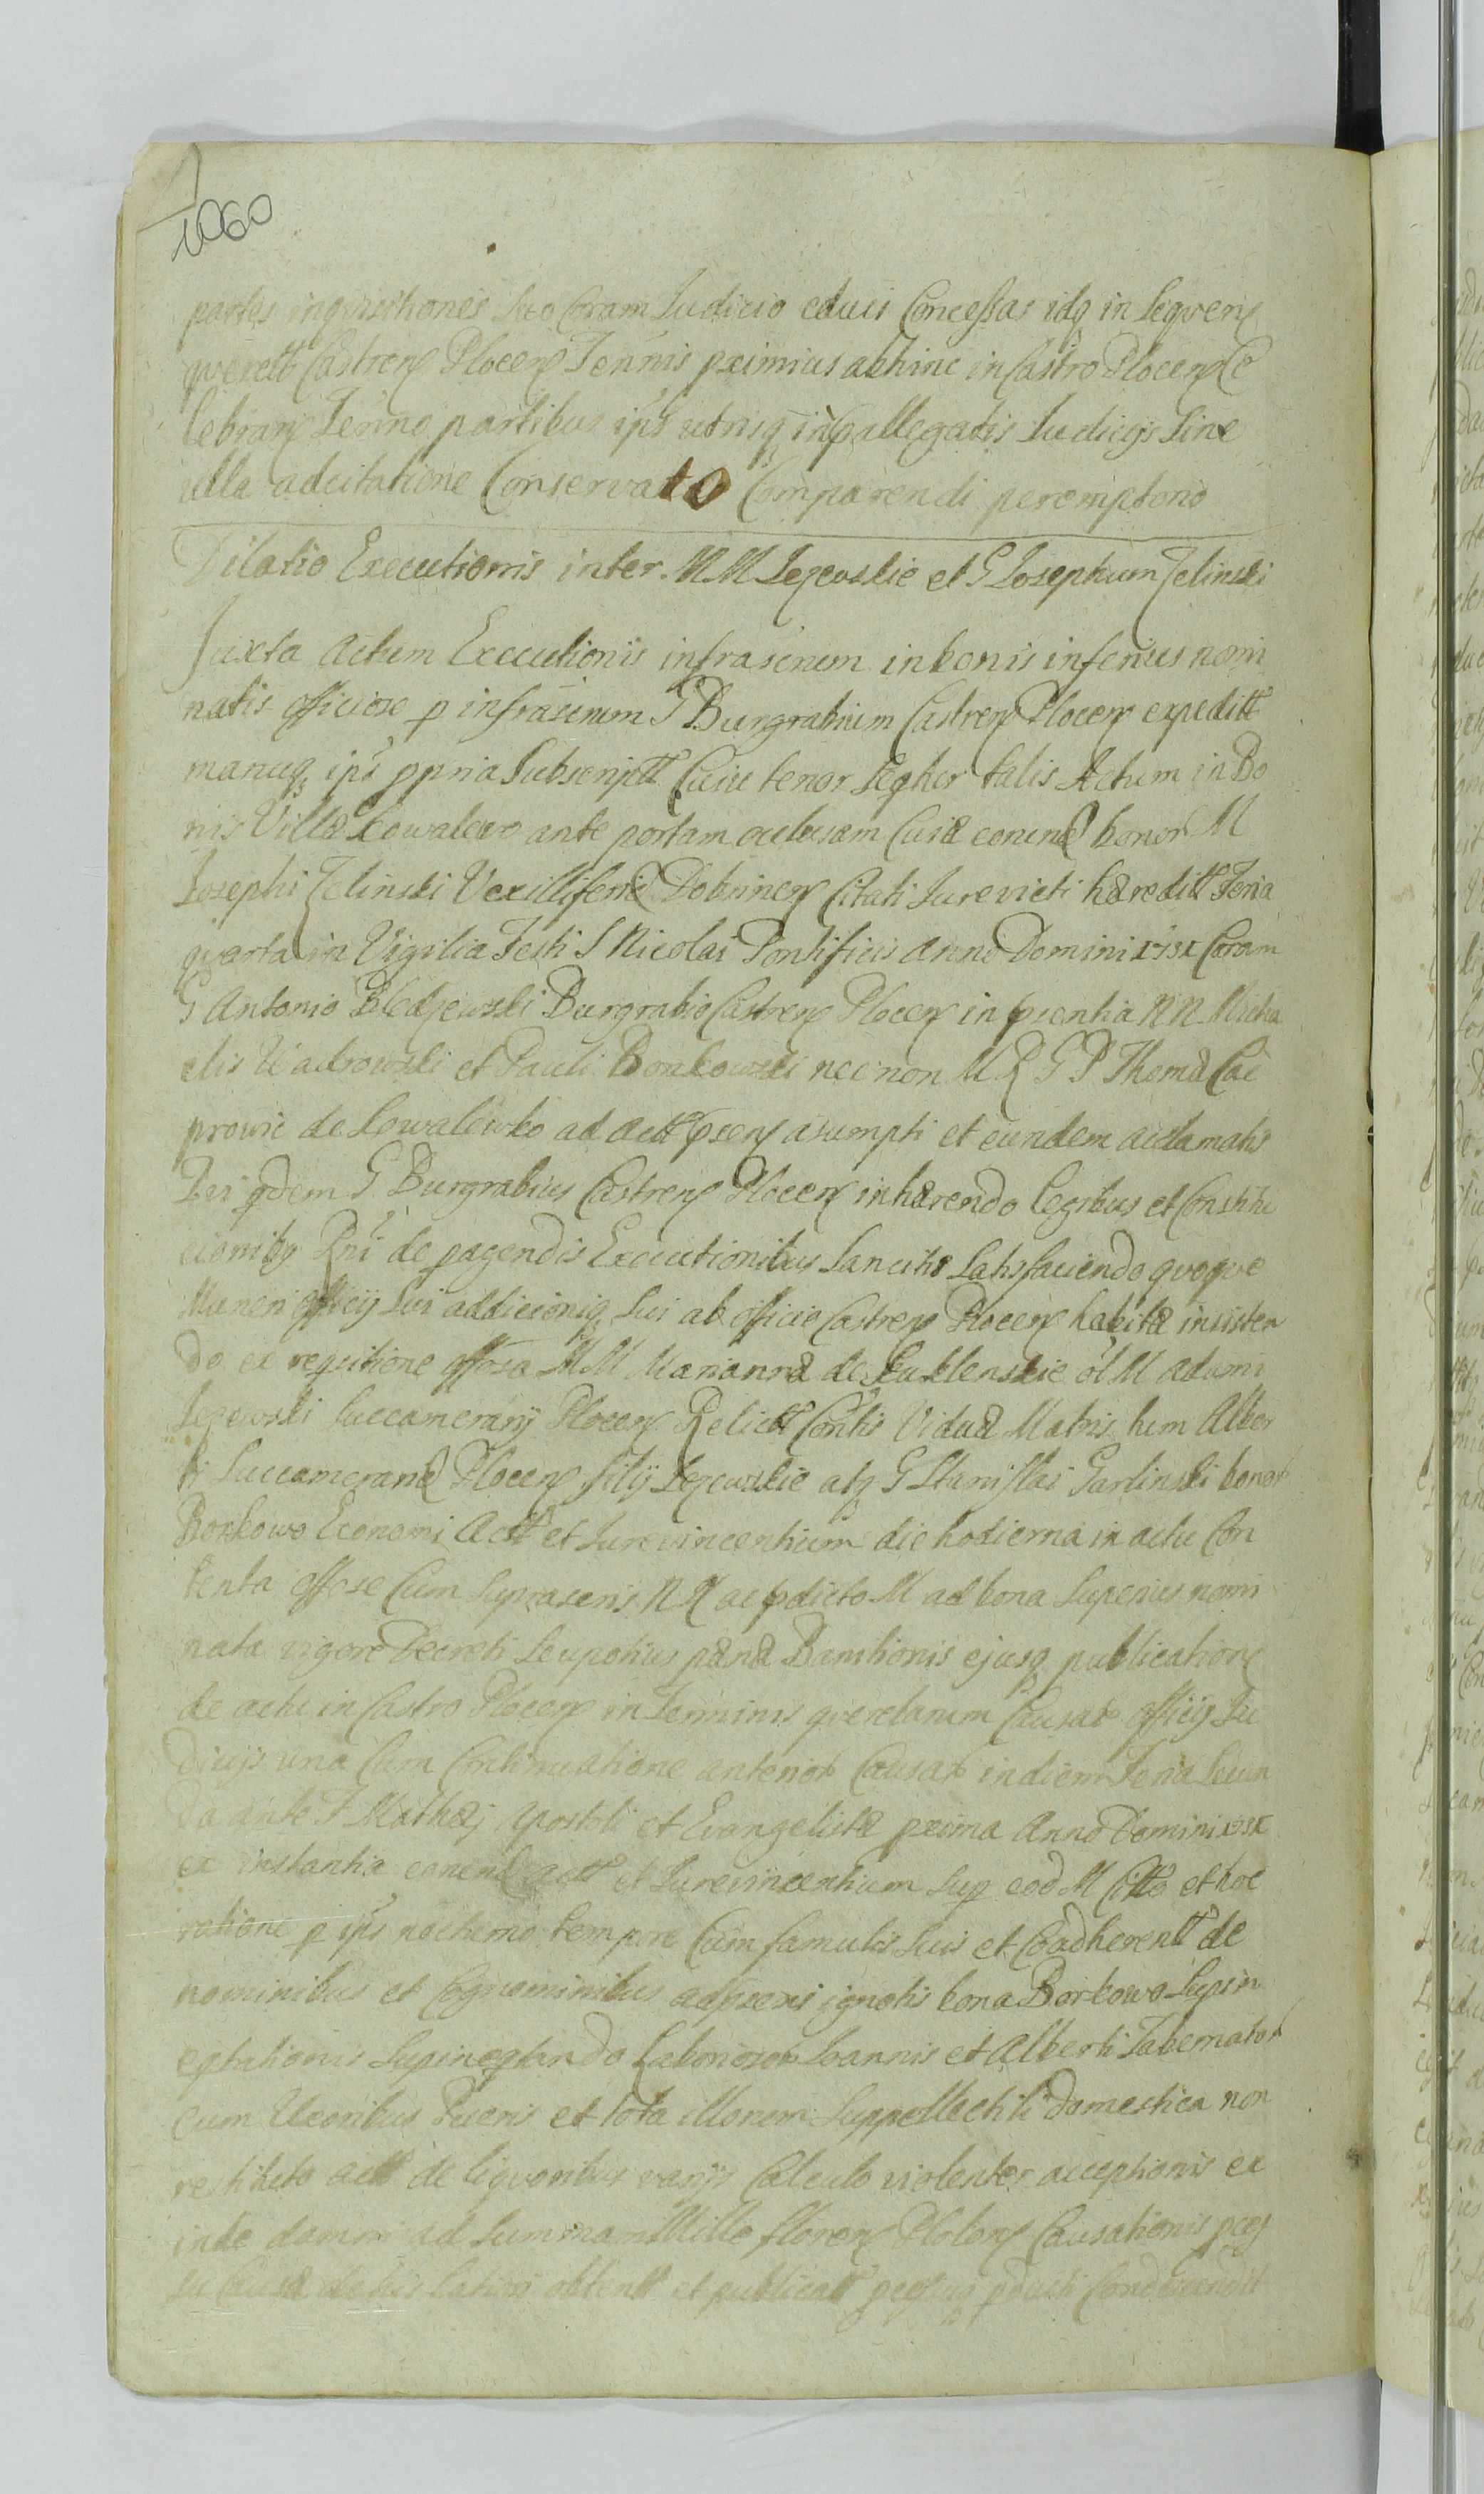 1060
partes inquisitiones suo Coram Judicio educi Concessas idq in sequen
querell Castren Plocen Termis pximius abhinc in Castro Plocen Ce
lebran Termo partibus ips utrisq in pallegatis Judicys sine
ulla adcitatione Conservato Comparendi peremptorio
Dilatio Executionis inter MM Lezewskie et G Josephum Zelinski
Juxta Actum Executionis infrascrum in bonis inferius nomi
natis officiose p infrascrum G Burgrabium Castren Plocen expeditt
manuq ips ppria Subscriptt Cuius tenor seqtur talis Actum in Bo
nis Villa Kowalewo ante portam oclusam Curiæ eorund bonor M
Josephi Zelinski Vexilliferid Dobrinen Citati Jurevicti hæreditt Feria
quarta in Vigilia Festi S Nicolai Pontificis Anno Domini 1731 Coram
G Antonio Bledzewski Burgrabio Castren Plocen in psentia NN Micha
elis Wadrowski et Pauli Borkowski nec non M R G P Thomæ Cac
prowic de Kowalewko ad actt psen asumpti et eundem acclamatis
Qui qdem G Burgrabius Castren Plocen inhærendo legibus et Constitu
cionibq Rni de pagendis Executionibus sancitis Satisfaciendo quoque
Muneri officij sui addicioniq sui ab officio Castren Plocen habitæ insisten
do ex reqsitione offosa MM Mariannæ de Kuklenskie ol M Adami
Lezewski Succamerarij Plocen Relictt Contis Viduæ Matris tum Alber
ti Succamerarid Plocen filij Lezewskie atq G Stanislai Garlinski bonor
Borkowo Economi Actt et Jurevincentium die hodierna in actu Con
tenta offose Cum suprascris NN ac pdicto M ad bona superius nomi
nata vigore Decreti seu potius pænæ Bannitionis ejusq publication
de actu in Castro Plocen in Terminis querelarum Causar officij Ju
dicijs una Cum Continuatione anterior Causar in diem Feria Secun
da ante F Mathæj Apostoli et Evangelistæ pxima Anno Domini 1731
ex instantia eorund actt et Jurevincentium sup eod M Citto et hoc
ratione p ips nocturno tempore Cum famulis suis et Coadherentt de
nominibus et Cognominibus adpsens ignotis bona Borkowo
Laborioror Joannis et Alberti Tabernator
cum Uxoribus Pueris et tota illorum Suppellectili domestica non
restituto actt de liquoribus varijs Calculo violenter acceptionis ex
inde damni ad summam Mille floren Polon Causationis
Causa latis obtentt et publicatt